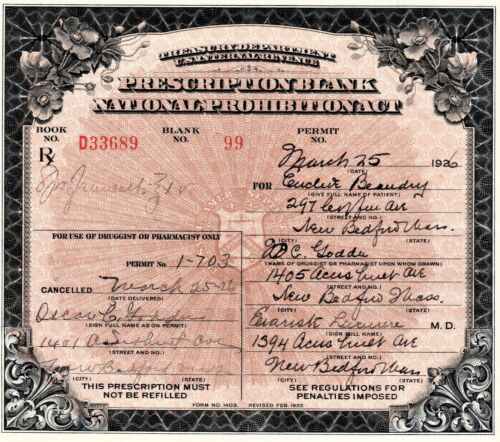 TREASURY DEPARTMENT
U.S. INTERNAL REVENUE
PRESCRIPTION BLANK
NATIONAL PROHIBITION ACT
BOOK NO. D33689 BLANK NO. 99 PERMIT NO.
R
March 25 1926
(DATE)
FOR Beaudry
(GIVE FULL NAME OF PATIENT)
297 Ave
(STREET AND NO.)
New Bedford Mass.
(CITY) (STATE)
FOR USE OF DRUGGIST OR PHARMACIST ONLY
O. C.
(NAME OF DRUGGIST OR PHARMACIST UPON WHOM DRAWN)
PERMIT NO. 1-703
1405 Acushnet Ave
(STREET AND NO.)
CANCELLED March 25-26
(DATE DELIVERED)
New Bedford Mass.
(CITY) (STATE)
Oscar C.
(SIGN FULL NAME AS ON PERMIT)
M. D.
(SIGN FULL NAME)
1401 Acushnet Ave
(STREET AND NO.)
1394 Acushnet Ave
(STREET AND NO.)
New Bedford
(CITY) (STATE)
New Bedford Mass
(CITY) (STATE)
THIS PRESCRIPTION MUST
NOT BE REFILLED
SEE REGULATIONS FOR
PENALTIES IMPOSED
FORM NO. 1403. REVISED FEB. 1922